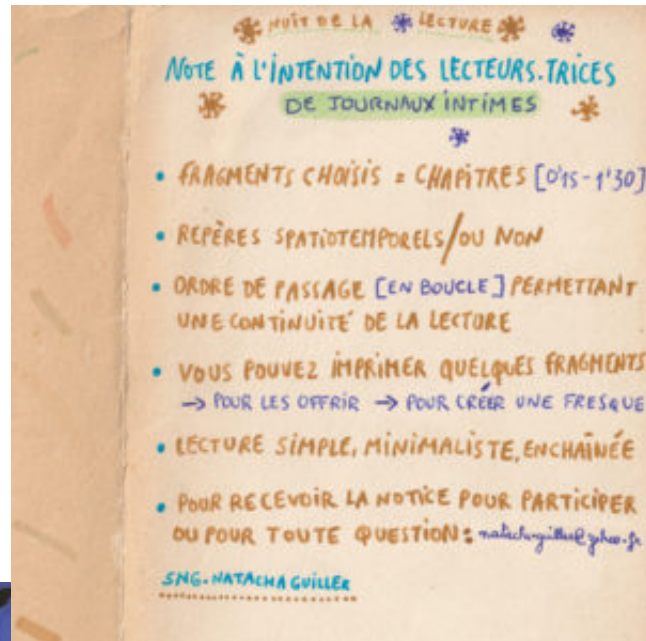 NUIT DE LA LECTURE
NOTE À L'INTENTION DES LECTEURS.TRICES
DE JOURNAUX INTIMES
• FRAGMENTS CHOISIS = CHAPITRES [0'15 - 1'30]
• REPÈRES SPATIOTEMPORELS/OU NON
• ORDRE DE PASSAGE [EN BOUCLE] PERMETTANT
UNE CONTINUITÉ DE LA LECTURE
• VOUS POUVEZ IMPRIMER QUELQUES FRAGMENTS
→ POUR LES OFFRIR → POUR CRÉER UNE FRESQUE
• LECTURE SIMPLE, MINIMALISTE, ENCHAÎNÉE
• POUR RECEVOIR LA NOTICE POUR PARTICIPER
OU POUR TOUTE QUESTION :
SNG. NATACHA GUILLER